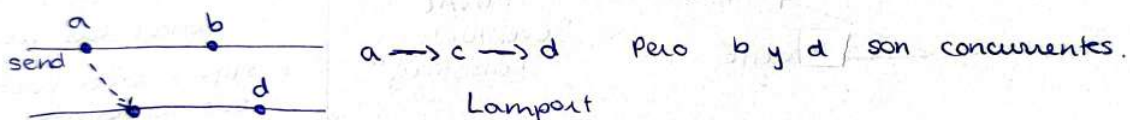 a b
send
d
a → c → d Pero b y d son concurrentes.
Lamport